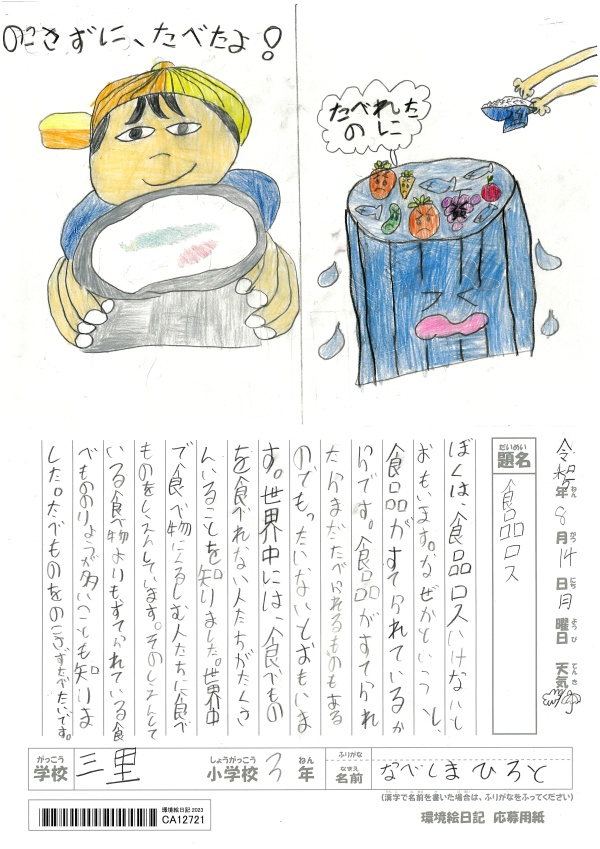 のこさずに、たべたよ!
たべれた
のに
令和5年8月14日月曜日 天気
ねん がつ にち ようび てんき
だいめい
題名
食品ロス
ぼくは、食品ロスいけないと
おもいます。なぜかというと、
食品がすてられているか
らです。食品がすてられ
たらまだたべられるものもある
のでもったいないとおもいま
す。世界中には、食べもの
を食べれない人たちがたくさ
んいることを知りました。世界中
で食べ物にくるしむ人たちに食べ
ものをしえんしています。そのしえんして
いる食べ物よりも、すてられている食
べもののりょうが多いことも知りま
した。たべものをのこさずたべたいです。
がっこう しょうがっこう ねん ふりがな
学校 三里 小学校 3年
なまえ
名前 なべしまひろと
(漢字で名前を書いた場合は、ふりがなをふってください)
環境絵日記 2023
CA12721
環境絵日記 応募用紙